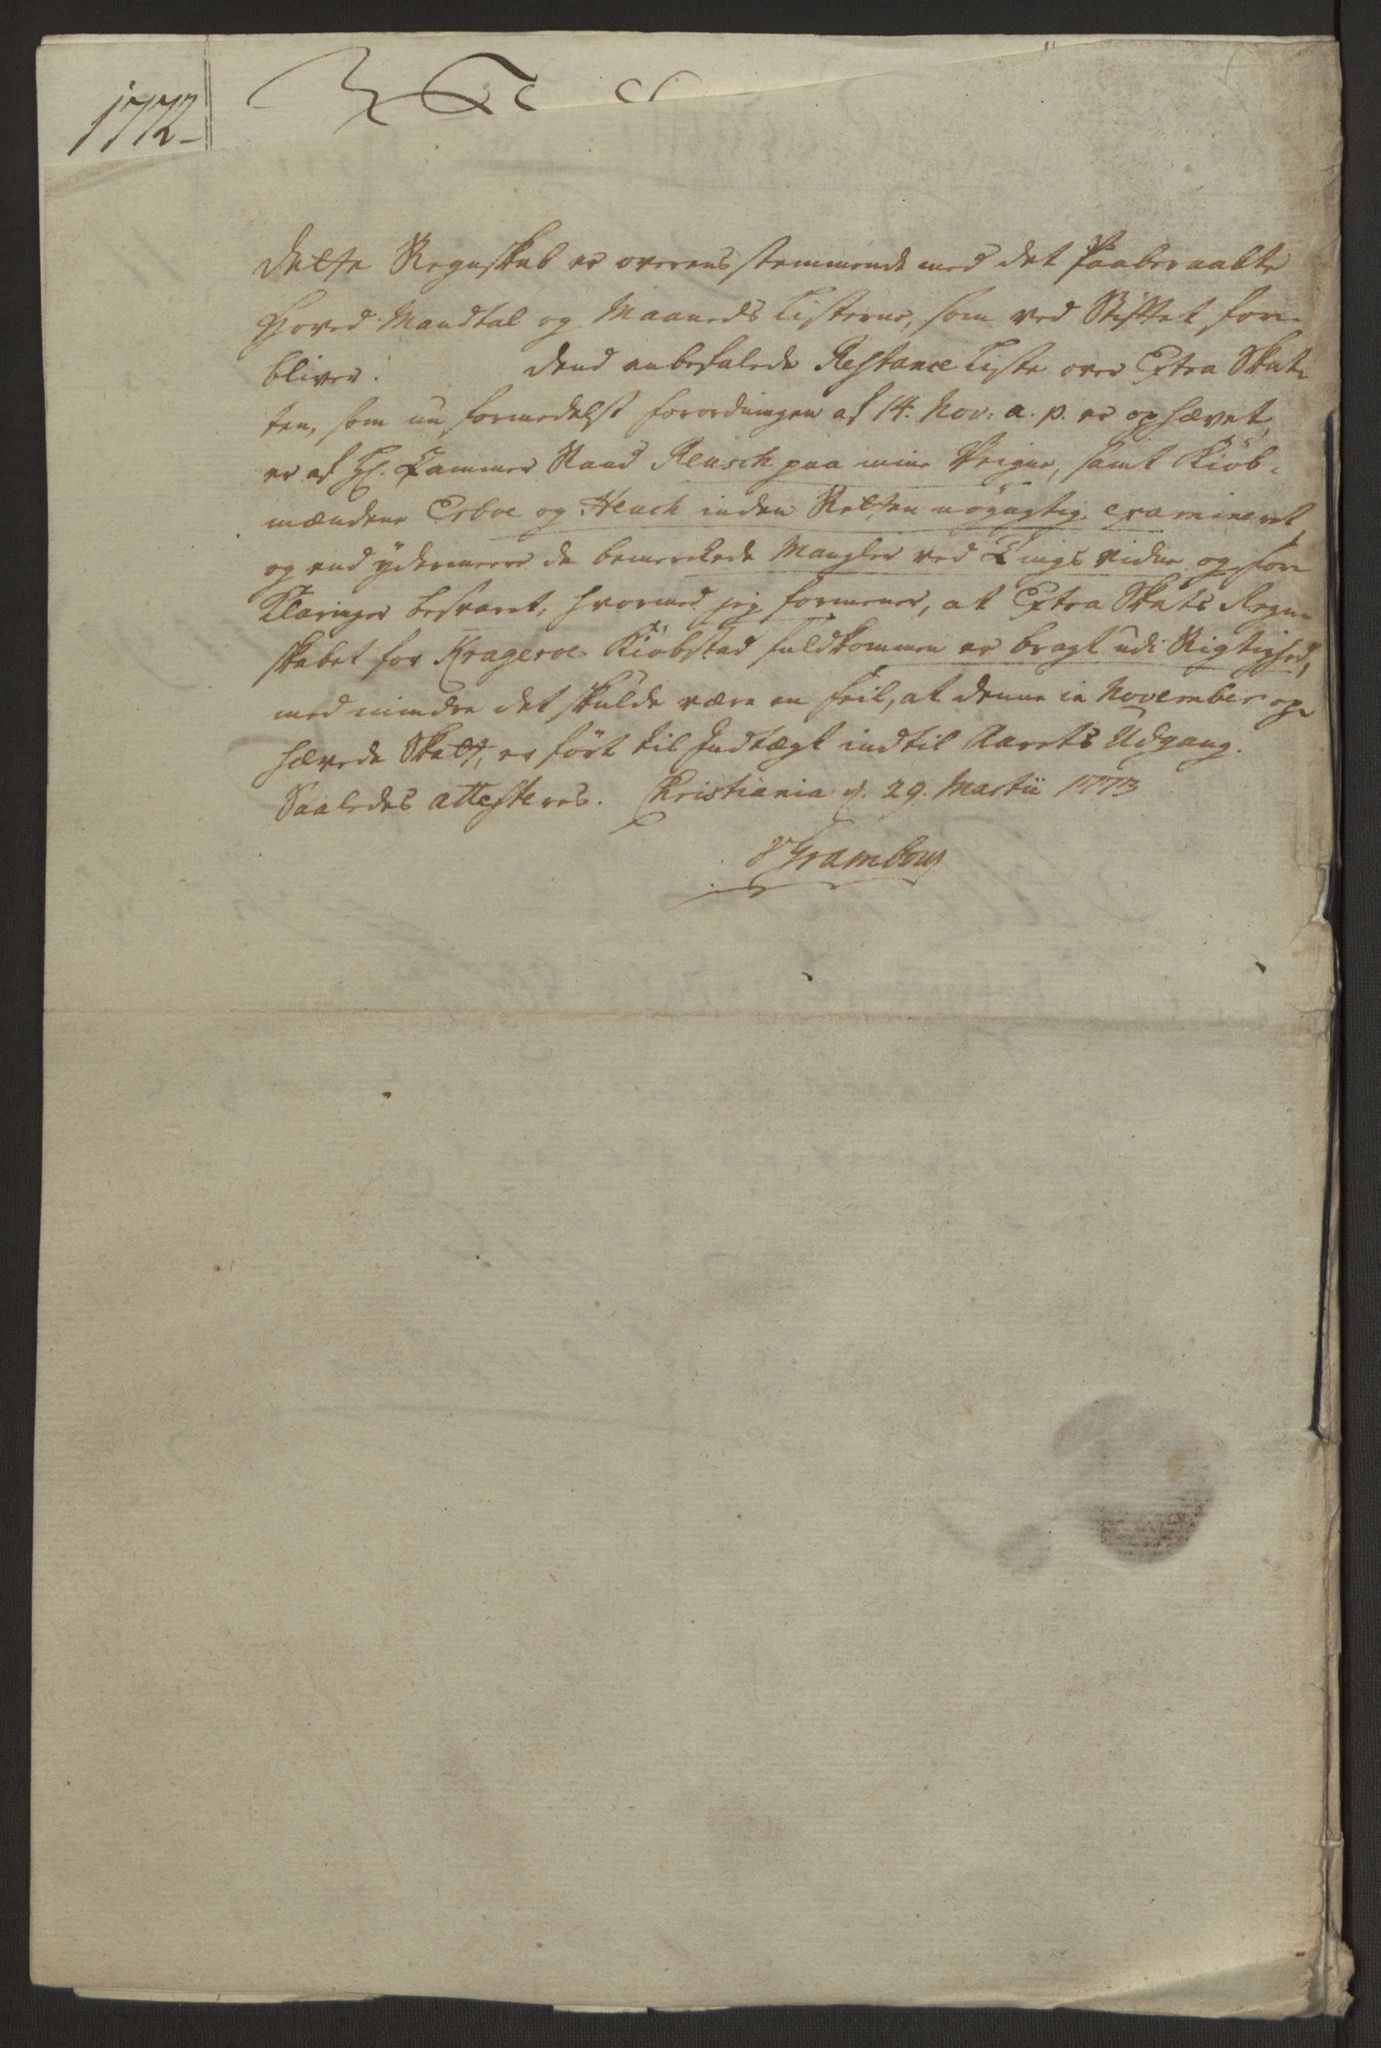 1772
Dette Regnskab er overensstemmende med det Paaberaabte
Hoved Mandtal og Maaneds Listerne, som ved Stiftet for-
bliver. Dend anbefalede Restance Liste over Extra Skat-
ten, som nu formedelst forordningen af 14. Nov: a. p. er ophævet,
er af Hr. Cammer Raad Reusch paa mine Veigne, samt Kiöb-
mændene Esboe og Heuch inden Retten nöyagtig examineret,
og end ydermeere de bemerkede Mangler ved Tings vidne og for-
Klaringer besvaret, hvormed jeg formener, at Extra Skats Regn-
skabet for Krageroe Kiöbstad fuldkommen er bragt udi Rigtighed,
med mindre det skulde være en feil, at denne in November op-
hævede Skatt, er fört til Indtægt indtil Aarets Udgang.
Saaledes attesteres. Christiania d. 29. Martii 1773